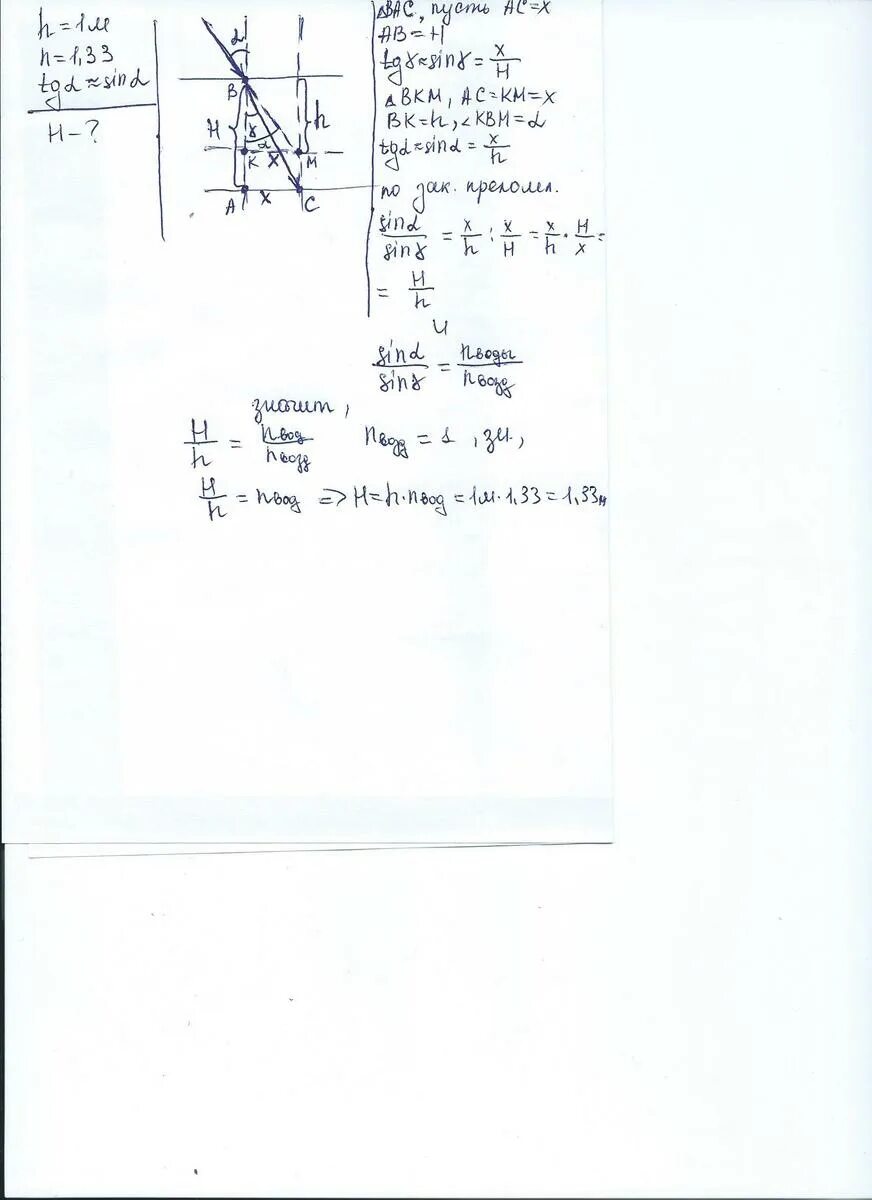 h = 1м
n = 1,33
tgα ≈ sinα
H - ?
α
B
H
γ
α
h
K
X
M
A
X
C
△BAC, пусть AC = X
AB = H
tgγ ≈ sinγ = x/H
△BKM, AC = KM = X
BK = h, ∠KBM = α
tgα ≈ sinα = x/h
по зак. преломл.
sinα/sinγ = x/h : x/H = x/h · H/x =
= H/h
и
sinα/sinγ = nводы/nвозд
значит,
H/h = nвод/nвозд nвозд = 1, зн,
H/h = nвод => H = h · nвод = 1м · 1,33 = 1,33м